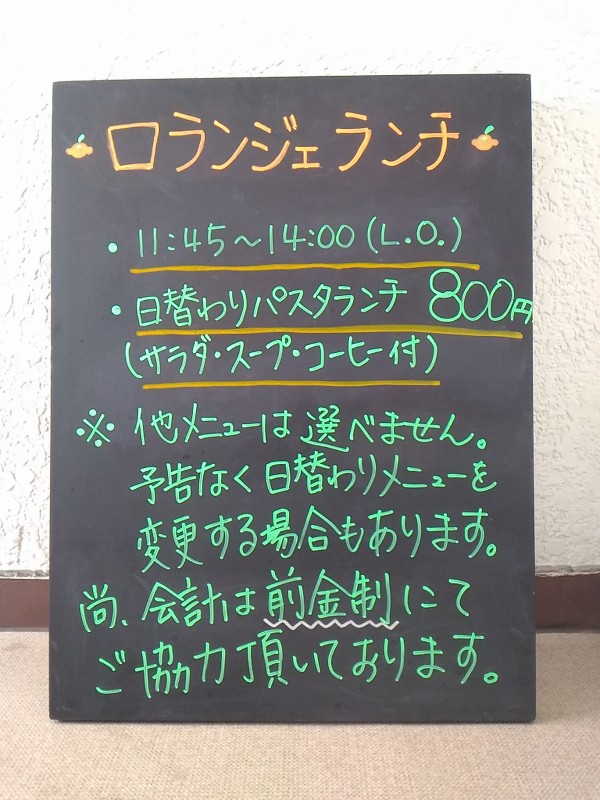 ロランジェランチ
・11:45～14:00(L.O.)
・日替わりパスタランチ 800円
(サラダ・スープ・コーヒー付)
※他メニューは選べません。
予告なく日替わりメニューを
変更する場合もあります。
尚、会計は前金制にて
ご協力頂いております。